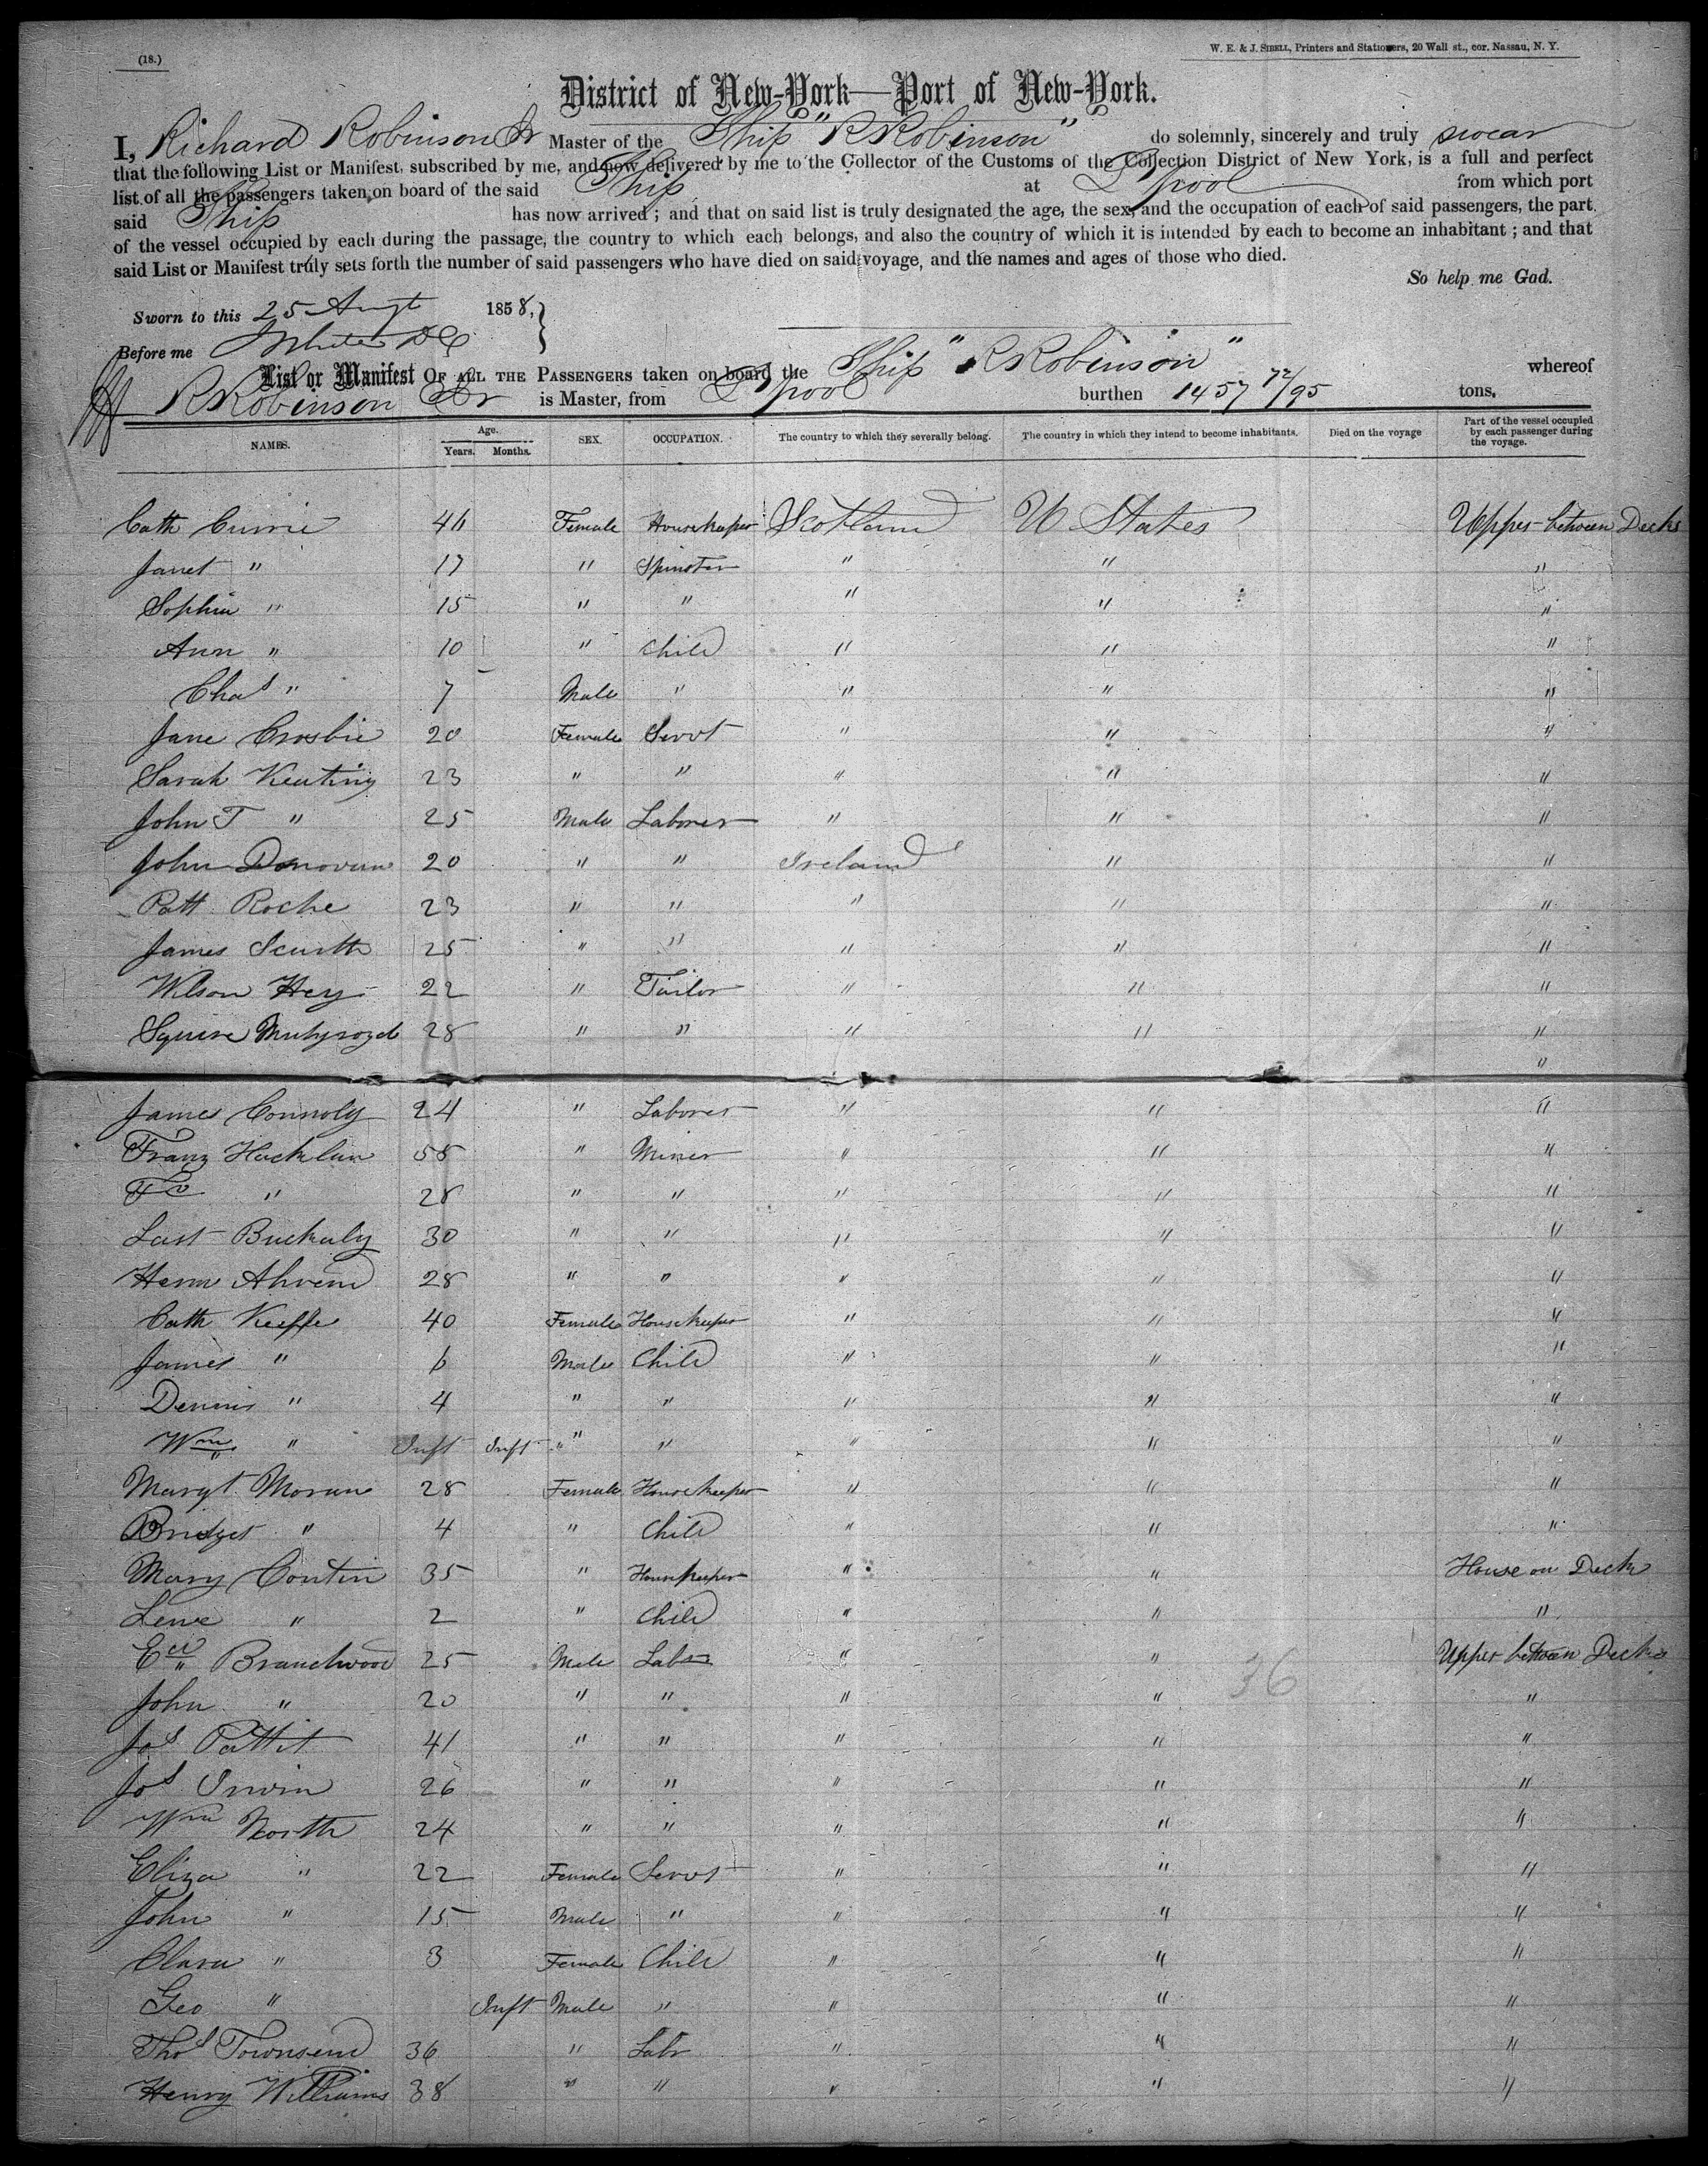 (18.)
W. E. & J. SIBELL, Printers and Stationers, 20 Wall st., cor. Nassau, N. Y.
District of New-York—Port of New-York.
I, Richard Robinson Jr Master of the Ship "R Robinson" do solemnly, sincerely and truly swear
that the following List or Manifest, subscribed by me, and now delivered by me to the Collector of the Customs of the Collection District of New York, is a full and perfect
list of all the passengers taken on board of the said Ship at L'pool from which port
said Ship has now arrived ; and that on said list is truly designated the age, the sex, and the occupation of each of said passengers, the part
of the vessel occupied by each during the passage, the country to which each belongs, and also the country of which it is intended by each to become an inhabitant ; and that
said List or Manifest truly sets forth the number of said passengers who have died on said voyage, and the names and ages of those who died.
So help me God.
Sworn to this 25 Augt 1858,
Before me White DC
List or Manifest OF ALL THE PASSENGERS taken on board the Ship "R Robinson" whereof
R Robinson Jr is Master, from L'pool burthen 1457 72/95 tons.
NAMES. Age. Years. Months. SEX. OCCUPATION. The country to which they severally belong. The country in which they intend to become inhabitants. Died on the voyage Part of the vessel occupied by each passenger during the voyage.
Cath Currie 46 Female Housekeeper Scotland U States Upper between Decks
Janet " 17 " Spinster " " "
Sophia " 15 " " " " "
Ann " 10 " Child " " "
Chas " 7 Male " " " "
Jane Crosbie 20 Female Servt " " "
Sarah Keating 23 " " " " "
John T " 25 Male Laborer " " "
John Donovan 20 " " Ireland " "
Patt Roche 23 " " " " "
James 25 " " " " "
Wilson Hey 22 " Tailor " " "
Squire 28 " " " " "
"
James Connoly 24 " Laborer " " "
Franz 55 " Miner " " "
" 28 " " " " "
Last Buckaly 30 " " " " "
Herm Ahrend 28 " " " " "
Cath Keeffe 40 Female Housekeeper " " "
James " 6 Male Child " " "
Dennis " 4 " " " " "
Wm " Inft Inft " " " " "
Margt Moran 28 Female Housekeeper " " "
Bridget " 4 " Child " " "
Mary Contin 35 " Housekeeper " " House on Deck
" 2 " Child " " "
Branchwood 25 Male Labr " " Upper between Decks
36
John " 20 " " " " "
Jos Pattit 41 " " " " "
Jos Irwin 26 " " " " "
Wm North 24 " " " " "
Eliza " 22 Female Servt " " "
John " 15 Male " " " "
Clara " 3 Female Child " " "
Geo " Inft Male " " " "
Thos Townsend 36 " Labr " " "
Henry Williams 38 " " " " "